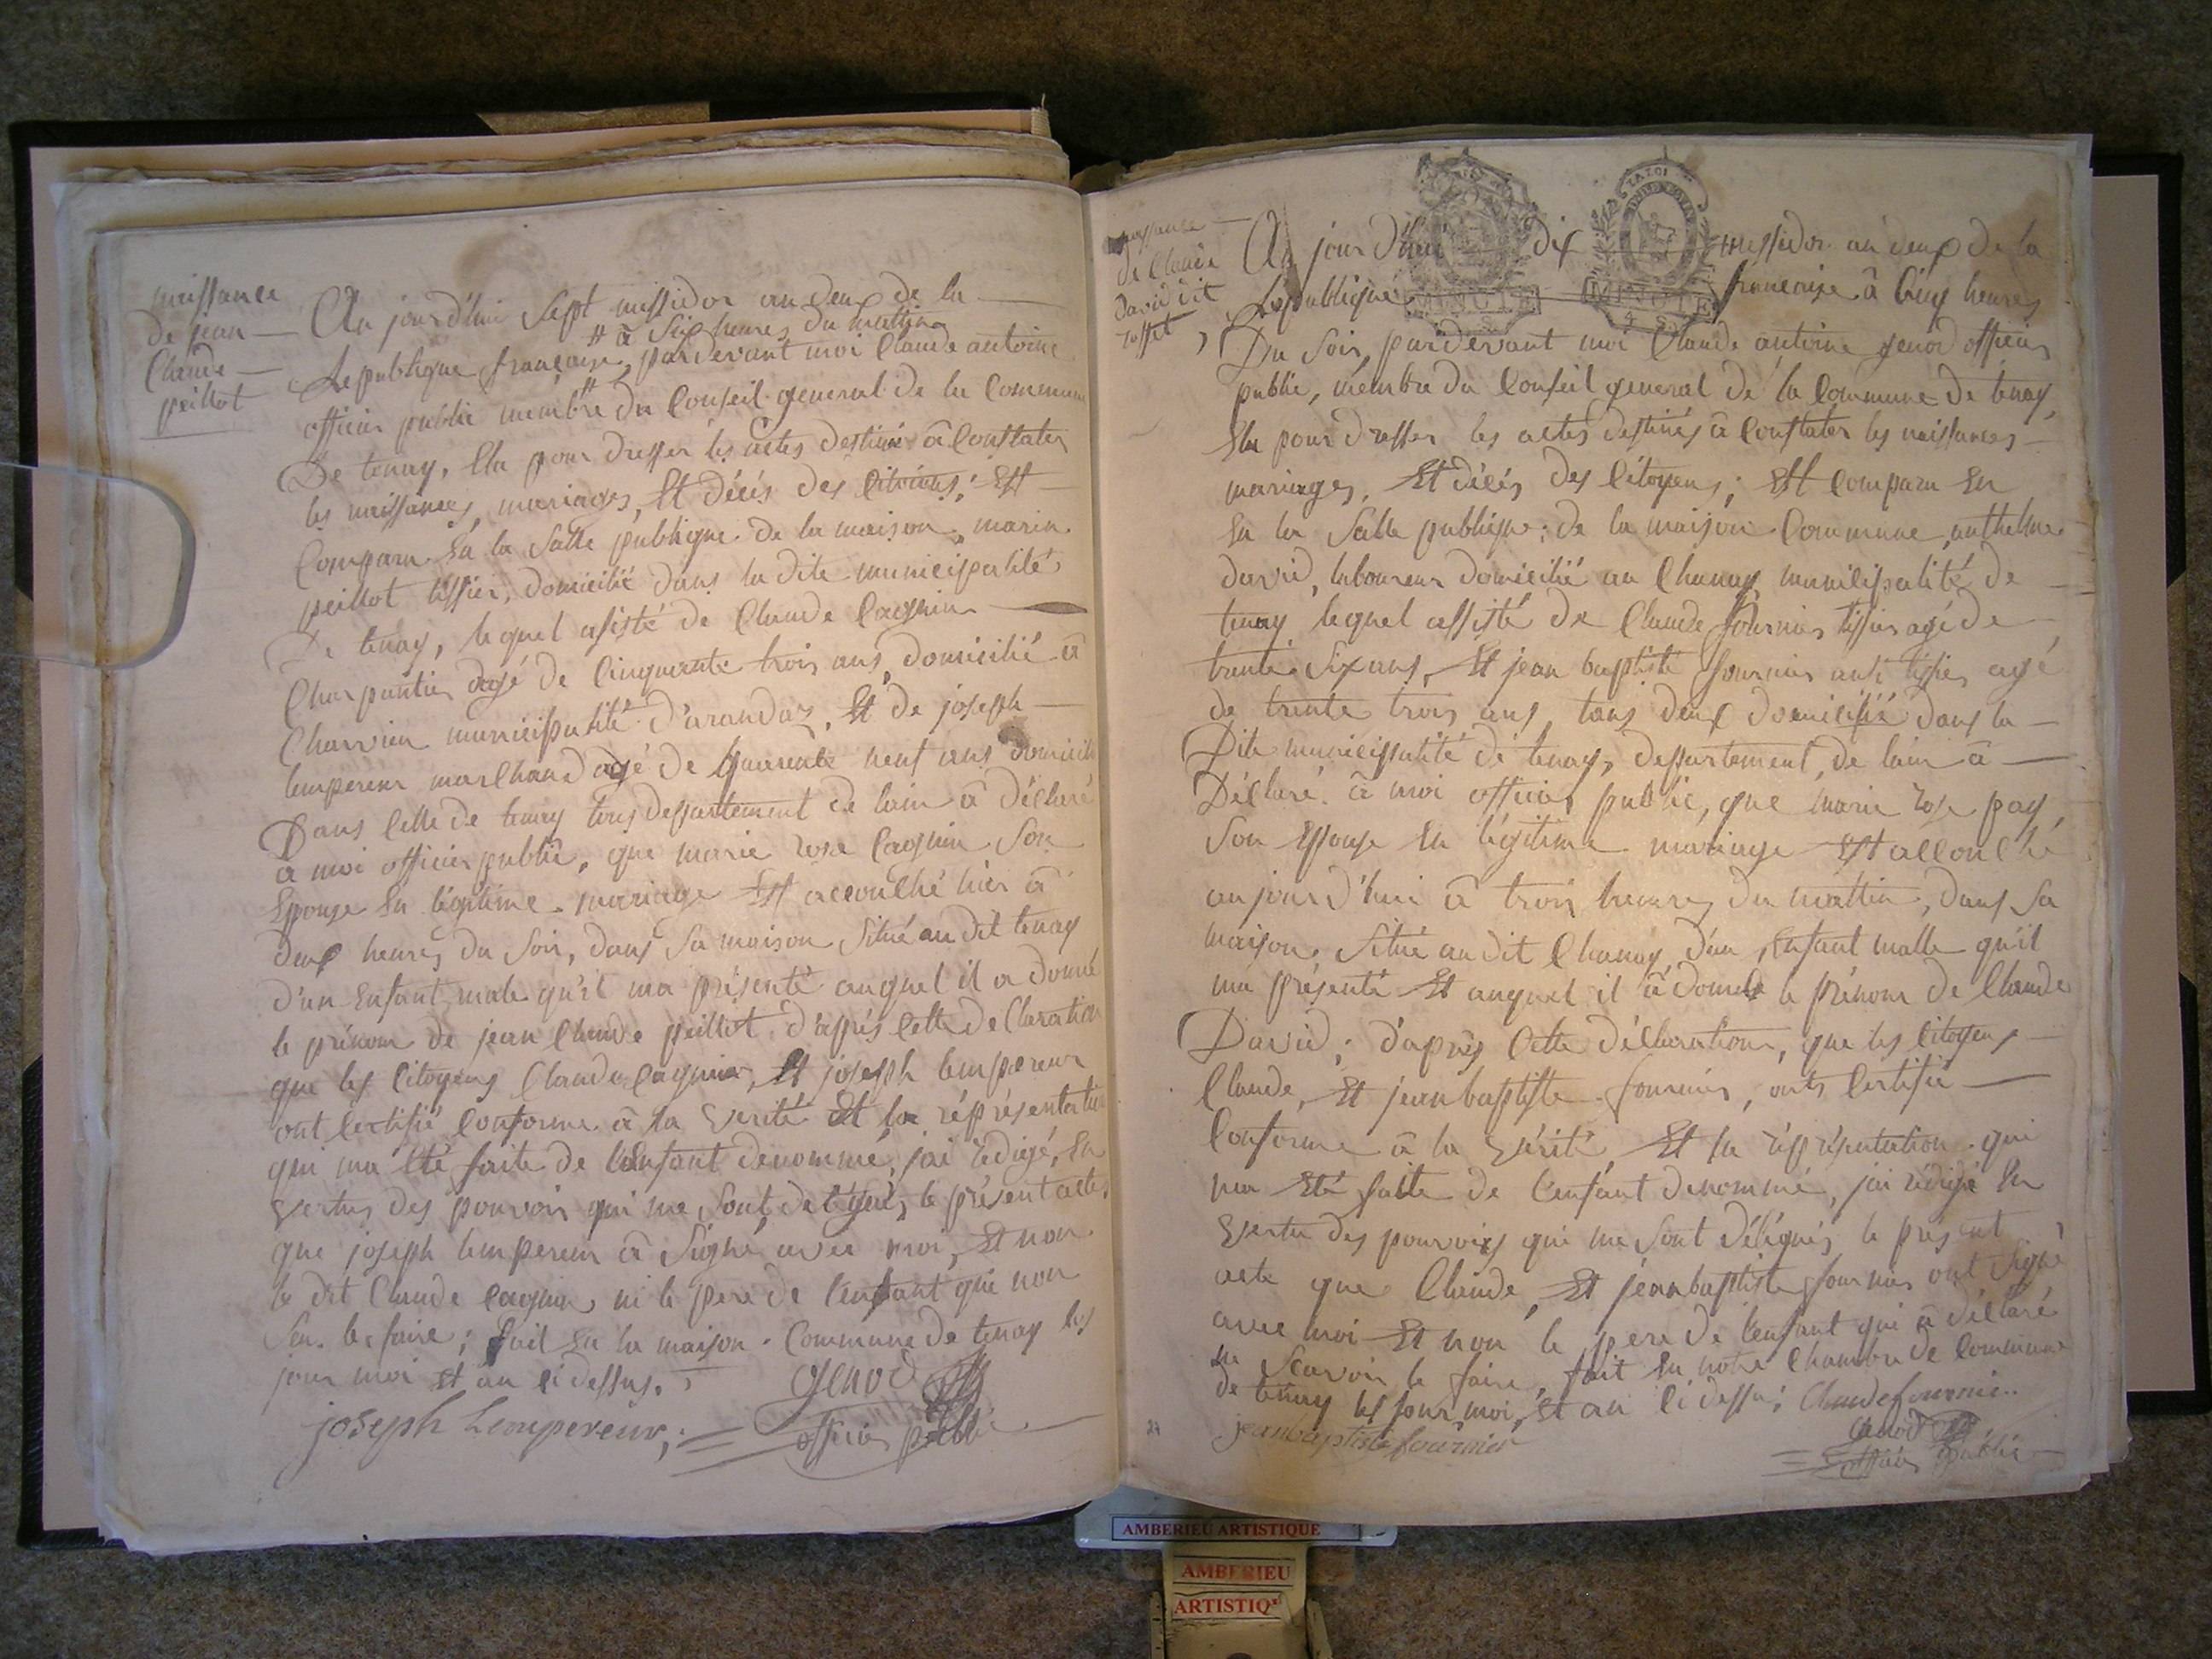 naissance
de jean
Claude
peillot
Au jourd'hui Sept messidor an deux de la
# a Six heures du mattin
Republique françaixe, # pardevant moi Claude antoine
officier public membre du Conseil general de la Commune
De tenay, Elu pour dresser les actes destiné à Constater
les naissances, mariages, Et décés des Citoiens; Est
Comparu En la Salle publique de la maison, marin
peillot tissier, domicilié dans la dite municipalité
De tenay, lequel asisté de Claude Cagnin
Charpantier agé de Cinquante trois ans, domicilié à
Charvieu municipalité d'arandaz, Et de joseph
lempereur marChand agé de Quarente neuf ans domicilié
Dans Celle de tenay tous departement de lain à déclaré
à moi officier public, que marie rose Cagnin Son
Epouse En légitime mariage Est accouChé hier à
deux heures du Soir, dans Sa maison Situé au dit tenay
d'un Enfant male qu'il ma présenté auquel il a donné
le prénom de jean Claude peillot, d'après Cette deClaration
que les Citoyens Claude Cagnin, Et joseph lempereur
ont Certifié Conforme à la verité Et la répréséntation
qui ma été faite de l'Enfant denommé, jai redigé, En
vertus des pouvoir qui me Sont delégués, le présent acte,
que joseph lempereur à Signé avec moi, Et non
le dit Claude Cagnin, ni le pere de l'enfant qui non
Seu le faire; fait En la maison Commune de tenay les
jour moi et an ci dessus,
genod
joseph Lempereur,
officier public
naissance
de Claude
David dit
toffet
Au jourd'hui dix messidor an deux de la
Republique françaixe à Cinq heures
Du Soir, pardevant moi Claude antoine genod officier
public, membre du Conseil general de la Commune de tenay,
Elu pour dresser les actes destinés à Constater les naissances
mariages, Et décés des Citoyens; Est Comparu En
En la Salle publique de la maison Commune, anthelme
david, laboureur domicilié au Chanay, municipalité de
tenay, lequel assisté de Claude fournier tissier agé de
trente Six ans, Et jean baptiste fournier aussi tissier agé
de trente trois ans, tous deux domicilié dans la
Dite municipalité de tenay, departement, de lain à
Déclaré à moi officier public, que marie rose pay,
Son Epouse En légitime mariage Est accouChé
aujourd'hui à trois heures du mattin, dans Sa
maison, Situé au dit Chanay, d'un Enfant malle qu'il
ma présenté Et auquel il à donné le prénom de Claude
David; d'après Cette déClaration, que les Citoyens
Claude, Et jean baptiste fournier, onts Certifié
Conforme à la vérité, Et la représentation qui
ma été faite de l'enfant denommé, jai rédigé En
vertu des pouvoirs qui me Sont délégués, le présent
acte que Claude, Et jean baptiste fournier ont Signé
avec moi Et non le pere de l'enfant qui à déClaré
ne Scavoir le faire, fait En notre Chambre de Commune
de tenay les jour, moi, Et an Ci dessu; Claude fournier
genod
27 jean baptiste fournier
officier public
MINUTE
MINUTE
4 S.
LA LOI
AMBERIEU ARTISTIQUE
AMBERIEU
ARTISTIQ